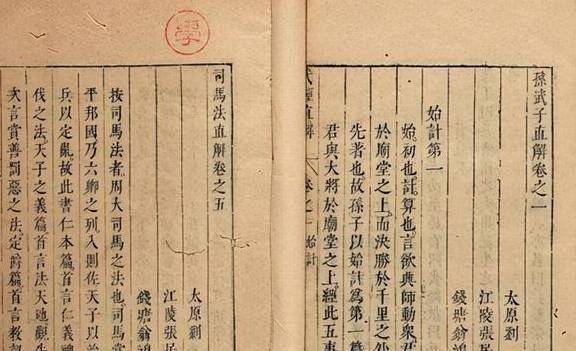 孫武子直解卷之一
太原劉
江陵張居
錢塘翁鴻
始計第一
始初也計算也言欲興師動衆君
於廟堂之上而決勝於千里之外
先著也故孫子以始計為第一篇
君與大將於廟堂之上經此五事
武經直解 卷之一 始計
學
司馬法直解卷之五
太原劉
江陵張居
錢塘翁鴻
按司馬法者周大司馬之法也司馬掌
平邦國乃六卿之列入則佐天子以治
兵以定亂故此書仁本篇首言仁義禮
伐之法天子之義篇首言法天地觀先
大言賞善罰惡之法定爵篇首言教